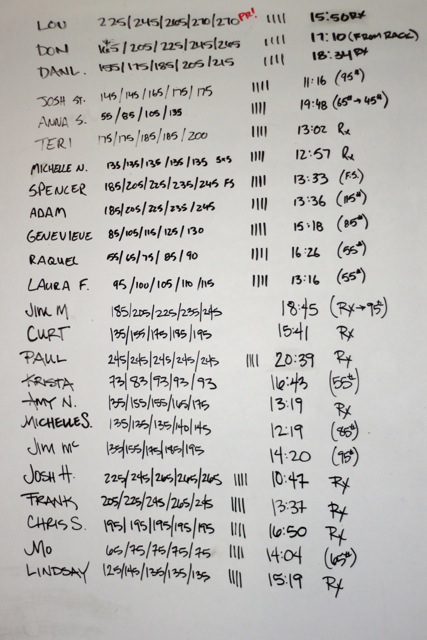 LOU 225/245/265/270/270 PR! |||| 15:50 RX
DON /205/225/245/265 |||| 17:10 (FROM RACK)
DANL. 155/175/185/205/215 18:34 RX
JOSH ST. 145/145/165/175/175 |||| 11:16 (95#)
ANNA S. 55/85/105/135 |||| 19:48 (65#→45#)
TERI 175/175/185/185/200 |||| 13:02 Rx
MICHELLE N. 135/135/135/135/135 5x5 |||| 12:57 Rx
SPENCER 185/205/225/235/245 FS |||| 13:33 (F.S.)
ADAM 185/205/225/235/245 |||| 13:36 (115#)
GENEVIEVE 85/105/115/125/130 |||| 15:18 (85#)
RAQUEL 55/65/75/85/90 |||| 16:26 (55#)
LAURA F. 95/100/105/110/115 |||| 13:16 (55#)
Jim M 185/205/225/235/245 18:45 (RX→95#)
CURT 135/155/175/185/195 15:41 Rx
PAUL 245/245/245/245/245 |||| 20:39 Rx
KRISTA 73/83/93/93/93 16:43 (55#)
AMY N. 135/155/155/165/175 13:19 Rx
MICHELLE S. 135/135/135/140/145 12:19 (85#)
Jim Mc 135/155/175/185/195 14:20 (95#)
JOSH H. 225/245/265/265/265 |||| 10:47 Rx
FRANK 205/225/245/265/245 |||| 13:37 Rx
CHRIS S. 195/195/195/195/195 |||| 16:50 Rx
Mo 65/75/75/75/75 |||| 14:04 (65#)
LINDSAY 125/145/135/135/135 |||| 15:19 Rx